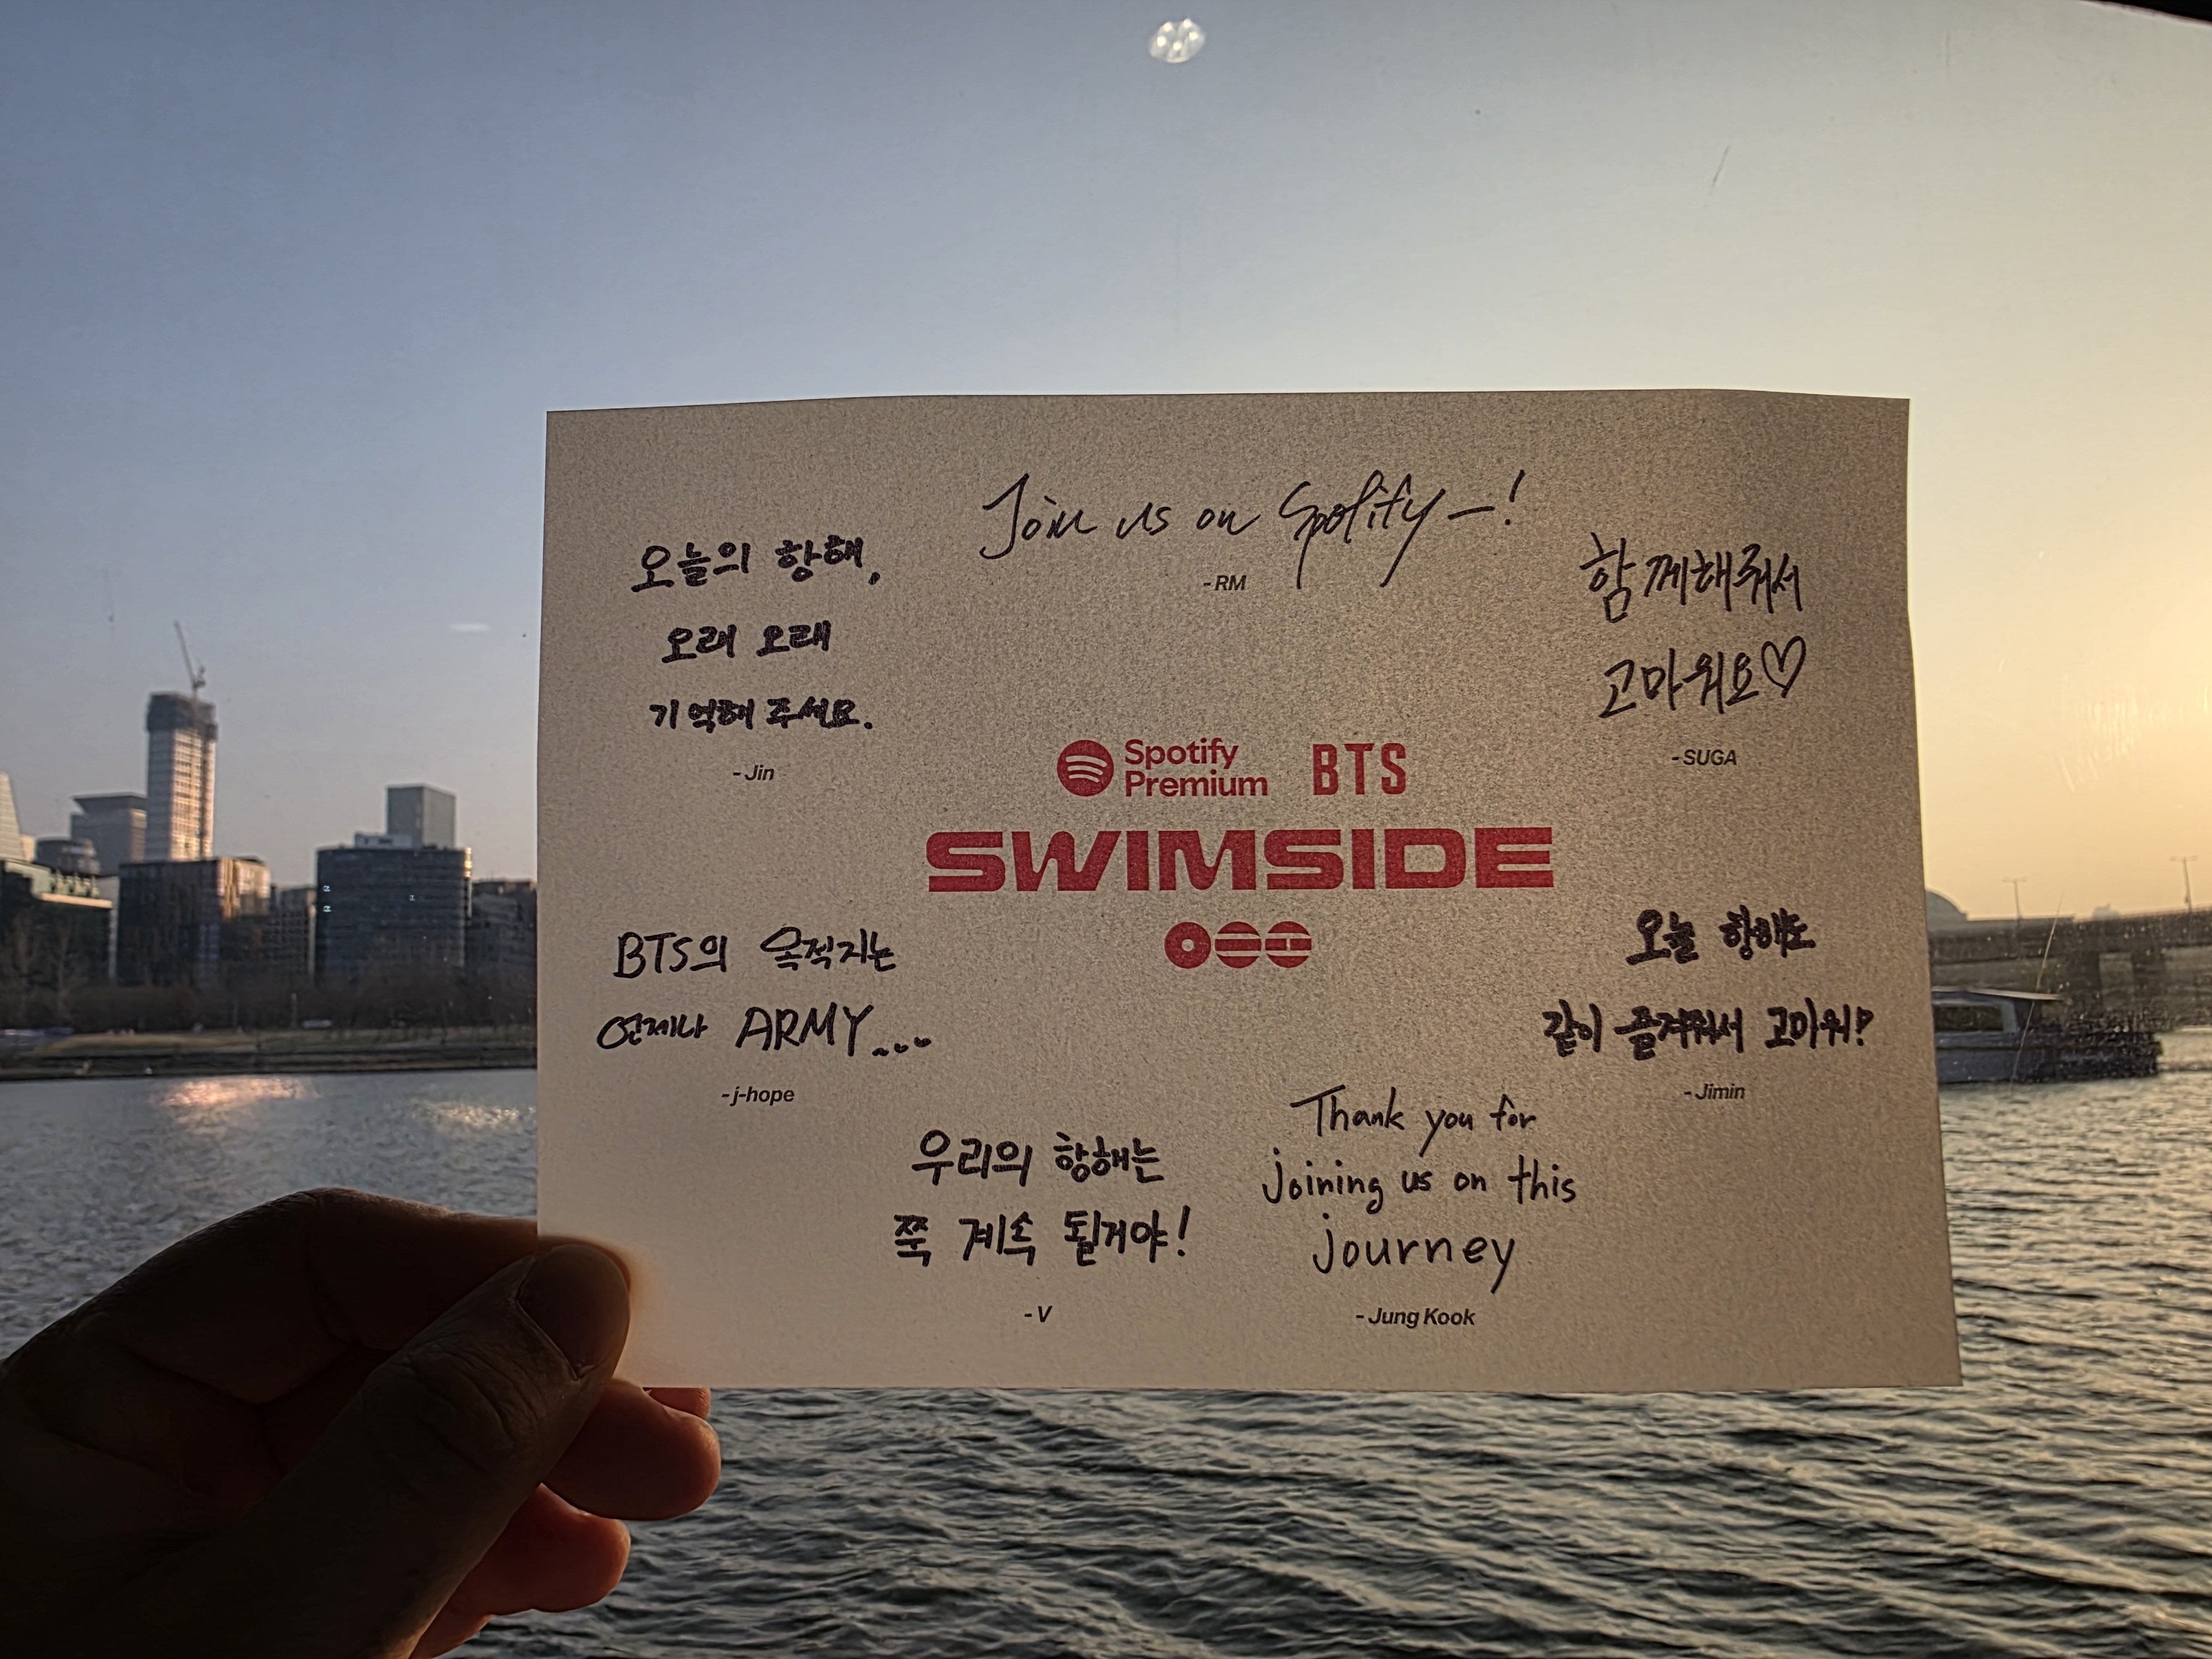 Join us on Spotify—!
-RM
오늘의 항해,
오래 오래
기억해 주세요.
-Jin
함께해줘서
고마워요♡
-SUGA
Spotify
Premium
BTS
SWIMSIDE
BTS의 목적지는
언제나 ARMY...
-j-hope
오늘 항해도
같이 즐겨줘서 고마워!
-Jimin
우리의 항해는
쭉 계속 될거야!
-V
Thank you for
joining us on this
journey
-Jung Kook